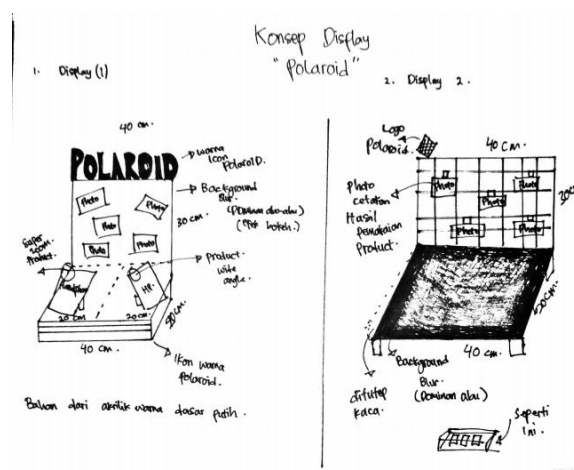 Konsep Display
"Polaroid"
1. Display (1)
40 cm.
POLAROID
warna
Icon
Polaroid.
Background
Blur.
(Dominan abu-abu)
(Efek bokeh.)
30 cm.
Photo
Photo
Photo
Photo
Photo
Super
zoom
Product.
Product
wide
angle.
Handphone
HP.
20 cm
20 cm.
30 cm.
40 cm.
Ikon warna
Polaroid.
Bahan dari akrilik warna dasar putih.
2. Display 2.
Logo
Polaroid.
40 cm.
Photo
cetakan
Hasil
Pemakaian
Product.
Photo
Photo
Photo
Photo
Photo
30 cm
40 cm.
Background
Blur.
(Dominan abu)
ditutup
kaca.
Seperti
ini.